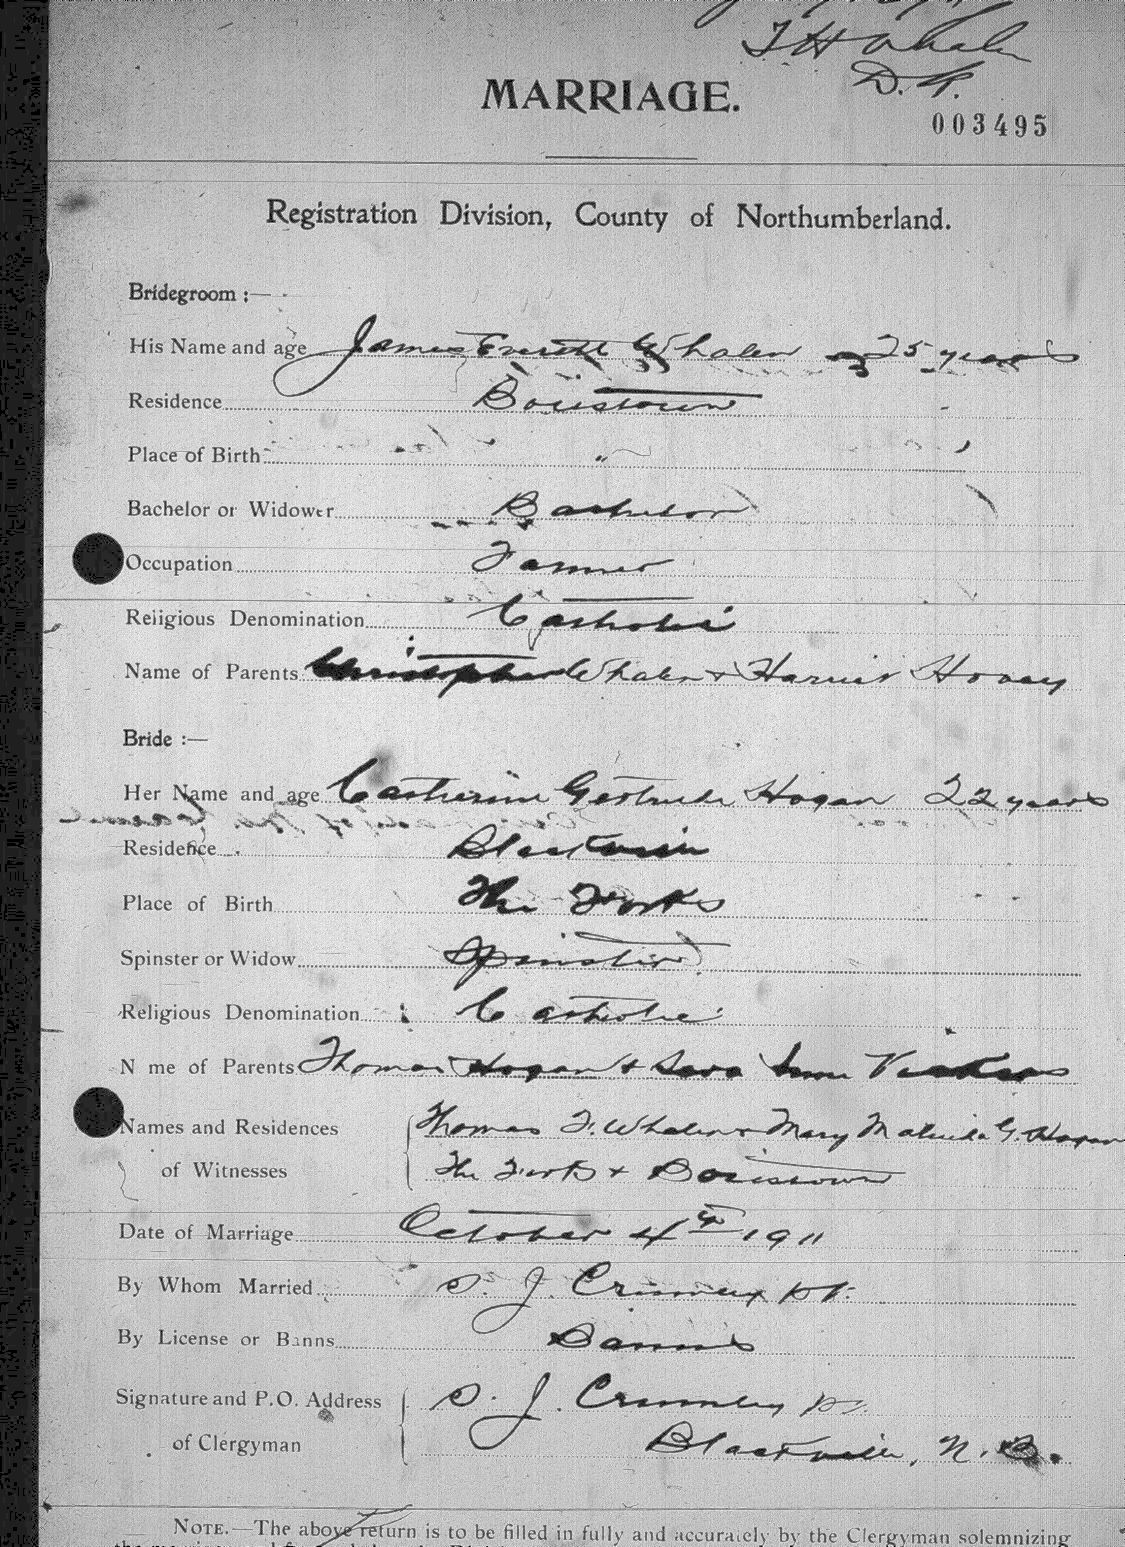 T H Whalen
D. R.
MARRIAGE.
003495
Registration Division, County of Northumberland.
Bridegroom :—
His Name and age James Everett Whalen 25 years
Residence Boiestown
Place of Birth "
Bachelor or Widower Bachelor
Occupation Farmer
Religious Denomination Catholic
Name of Parents Christopher Whalen & Harriet Hovey
Bride :—
Her Name and age Catherine Gertrude Hogan 22 years
Residence Blackville
Place of Birth The Forks
Spinster or Widow Spinster
Religious Denomination Catholic
N me of Parents Thomas Hogan & Sara Ann Vickers
Names and Residences Thomas F. Whalen & Mary Malinda G. Hogan
of Witnesses The Forks & Boiestown
Date of Marriage October 4th 1911
By Whom Married S. J. Crumley pt.
By License or Banns Banns
Signature and P.O. Address S. J. Crumley pt.
of Clergyman Blackville, N. B.
NOTE.—The above return is to be filled in fully and accurately by the Clergyman solemnizing